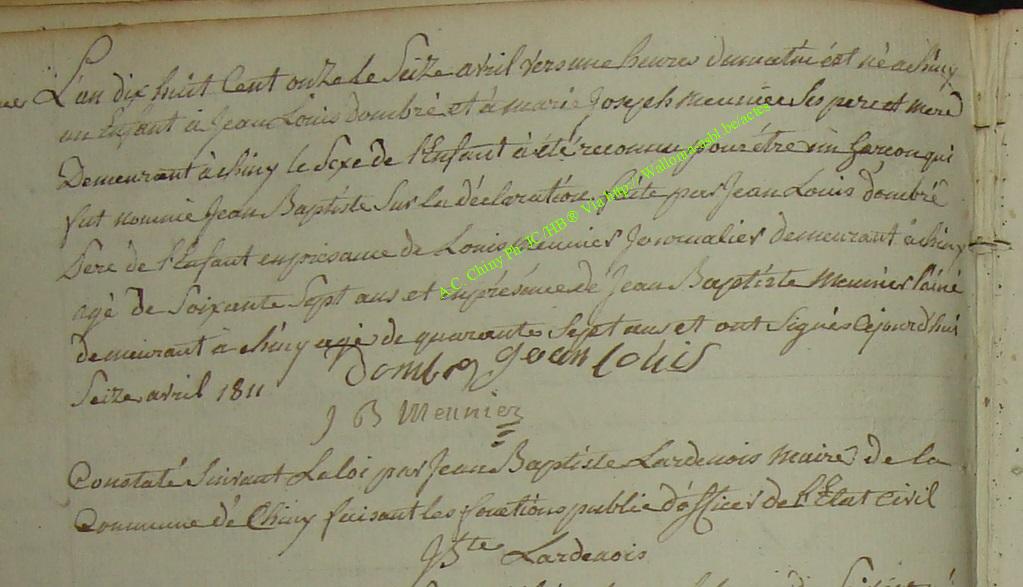 L'an dix huit Cent onze le Seize avril vers une heures du matin est né a chiny
un Enfant à Jean Louis dombré et à marie Joseph meunier Ses pere et mere
Demeurant à chiny le Sexe de l'Enfant à été reconnu pour être un Garcon qui
fut nommé Jean Baptiste Sur la déclaration faite par Jean Louis dombré
Pere de l'Enfant en presance de Louis meunier Journalier demeurant à chiny
agé de Soixante Sept ans et en présence de Jean Baptiste meunier l'ainé
demeurant à chiny agé de quarante Sept ans et ont Signés Cejourd'hui
Seize avril 1811 Dombre Jean Louis
J B Meunier
Constaté Suivant La loi par Jean Baptiste Lardenois maire de la
Commune de Chiny faisant les fonctions public d'officier de l'Etat Civil
JBte Lardenois
A.C. Chiny Ph. JC /HB ® Via http:// Wallonia asbl.be/actes